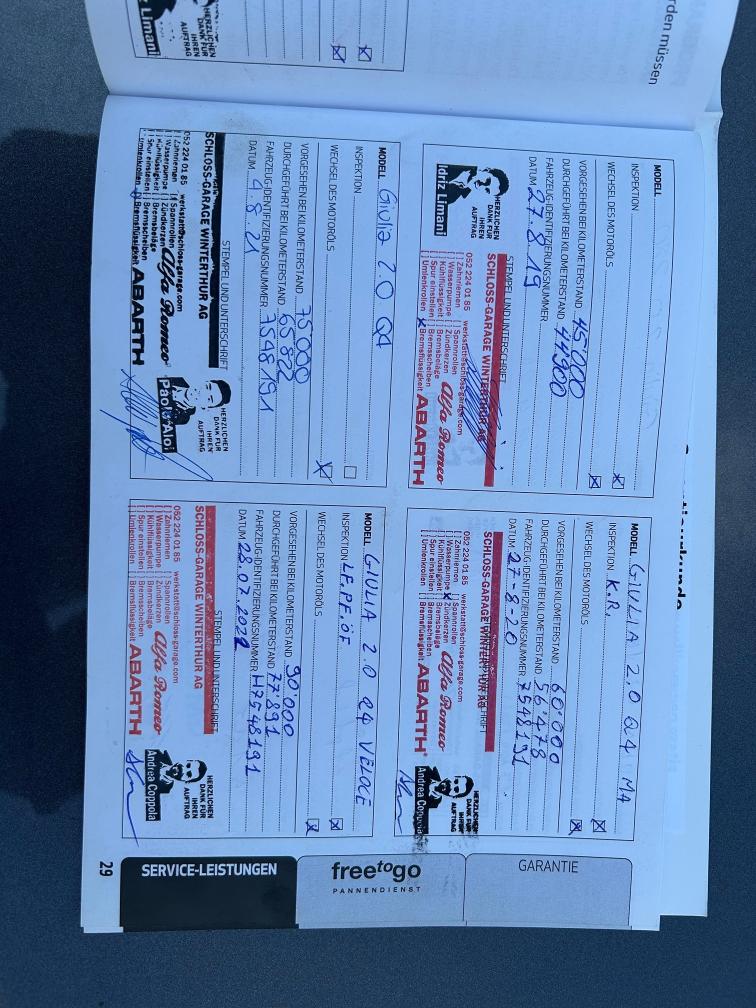 rden müssen
z Limani
HERZLICHEN
DANK FÜR
IHREN
AUFTRAG
MODELL
INSPEKTION
WECHSEL DES MOTORÖLS
VORGESEHEN BEI KILOMETERSTAND 45'000
DURCHGEFÜHRT BEI KILOMETERSTAND 44900
FAHRZEUG-IDENTIFIZIERUNGSNUMMER
DATUM 27.8.19
STEMPEL UND UNTERSCHRIFT
SCHLOSS-GARAGE WINTERTHUR AG
052 224 01 85 werkstatt@schloss-garage.com
[ ] Zahnriemen [ ] Spannrollen
[ ] Wasserpumpe [ ] Zündkerzen
[ ] Kühlflüssigkeit [ ] Bremsbeläge
[ ] Spur einstellen [ ] Bremsscheiben
[ ] Umlenkrollen [x] Bremsflüssigkeit
Alfa Romeo
ABARTH
HERZLICHEN
DANK FÜR
IHREN
AUFTRAG
Idriz Limani
MODELL GIULIA 2.0 Q4 MA
INSPEKTION K.R.
WECHSEL DES MOTORÖLS
VORGESEHEN BEI KILOMETERSTAND 60'000
DURCHGEFÜHRT BEI KILOMETERSTAND 56'478
FAHRZEUG-IDENTIFIZIERUNGSNUMMER 7548191
DATUM 27-8-20
SCHLOSS-GARAGE WINTERTHUR AG
052 224 01 85 werkstatt@schloss-garage.com
[ ] Zahnriemen [ ] Spannrollen
[ ] Wasserpumpe [x] Zündkerzen
[ ] Kühlflüssigkeit [ ] Bremsbeläge
[ ] Spur einstellen [ ] Bremsscheiben
[ ] Umlenkrollen [ ] Bremsflüssigkeit
Alfa Romeo
ABARTH
HERZLICHEN
DANK FÜR
IHREN
AUFTRAG
Andrea Coppola
MODELL Giulia 2.0 Q4
INSPEKTION
WECHSEL DES MOTORÖLS
VORGESEHEN BEI KILOMETERSTAND 75'000
DURCHGEFÜHRT BEI KILOMETERSTAND 65822
FAHRZEUG-IDENTIFIZIERUNGSNUMMER 7548191
DATUM 4.8.21
STEMPEL UND UNTERSCHRIFT
SCHLOSS-GARAGE WINTERTHUR AG
052 224 01 85 werkstatt@schloss-garage.com
[ ] Zahnriemen [ ] Spannrollen
[ ] Wasserpumpe [ ] Zündkerzen
[ ] Kühlflüssigkeit [ ] Bremsbeläge
[ ] Spur einstellen [ ] Bremsscheiben
[ ] Umlenkrollen [x] Bremsflüssigkeit
Alfa Romeo
ABARTH
HERZLICHEN
DANK FÜR
IHREN
AUFTRAG
Paolo Aloi
MODELL GIULIA 2.0 Q4 VELOCE
INSPEKTION LF, PF, ÖF
WECHSEL DES MOTORÖLS
VORGESEHEN BEI KILOMETERSTAND 90'000
DURCHGEFÜHRT BEI KILOMETERSTAND 77'891
FAHRZEUG-IDENTIFIZIERUNGSNUMMER H7548191
DATUM 28.07.2022
STEMPEL UND UNTERSCHRIFT
SCHLOSS-GARAGE WINTERTHUR AG
052 224 01 85 werkstatt@schloss-garage.com
[ ] Zahnriemen [ ] Spannrollen
[ ] Wasserpumpe [ ] Zündkerzen
[ ] Kühlflüssigkeit [ ] Bremsbeläge
[ ] Spur einstellen [ ] Bremsscheiben
[ ] Umlenkrollen [ ] Bremsflüssigkeit
Alfa Romeo
ABARTH
HERZLICHEN
DANK FÜR
IHREN
AUFTRAG
Andrea Coppola
GARANTIE
freetogo
PANNENDIENST
SERVICE-LEISTUNGEN
29